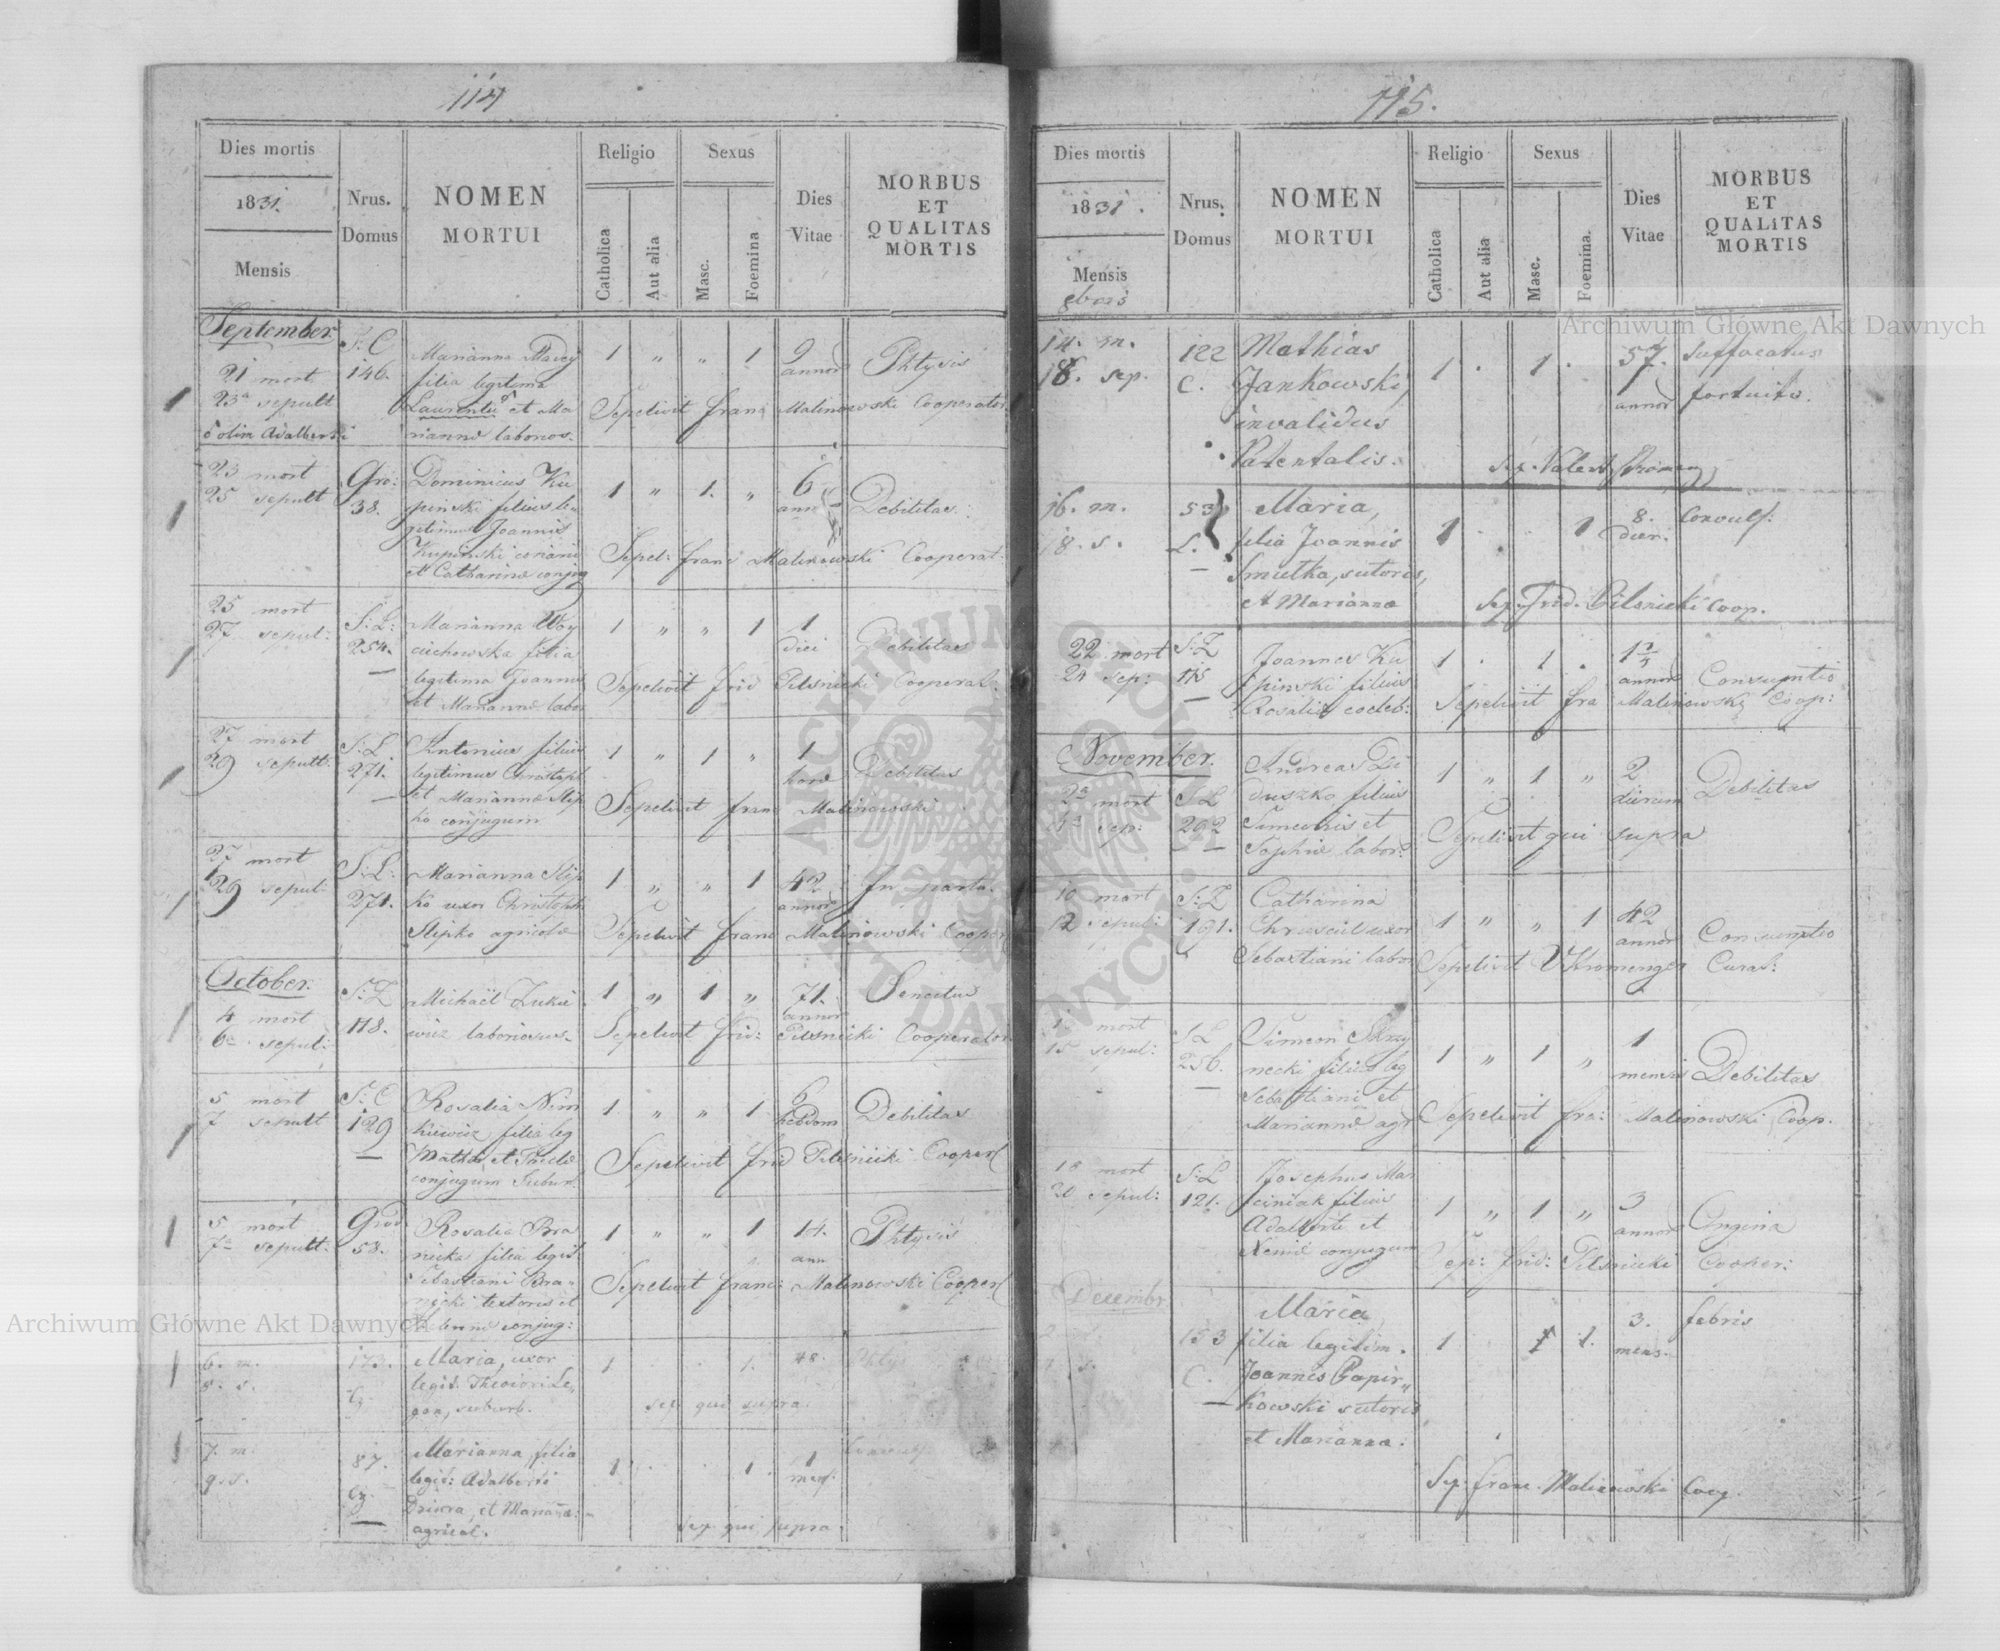 114
Dies mortis
1831.
Mensis
Nrus.
Domus
NOMEN
MORTUI
Religio
Catholica
Aut alia
Sexus
Masc.
Foemina
Dies
Vitae
MORBUS
ET
QUALITAS
MORTIS
September
S: C
21 mort 146. Marianna 1 " " 1 9 Phtysis
23a sepult filia legitima annor
Laurentii et Ma Sepelivit Franc Malinowski Cooperator
olim Adalberti rianna laborios.
23 mort Gro: Dominicus Ku 1 " 1. " 6 Debilitas
25 sepult 38. pinski filius le ann
gitimus Joannis
Kupinski Sepel: Franc Malinowski Cooperat.
et Catharina conjug
25 mort S: L: Marianna Woy 1 " " 1 1 Debilitas
27 sepul: 254. ciechowska filia diei
legitima Joannis Sepelivit Frid Pilsnicki Cooperat.
et Marianna labor
27 mort S: L Antonius filius 1 " 1 " 1 Debilitas
29 sepult: 271. legitimus Christoph hora
et Marianna Slip Sepelivit Franc Malinowski
ko conjugum
27 mort S: L: Marianna Slip 1 " " 1 42 In partu.
29 sepul: 271. ko uxor Christophi annor
Slipko agricola Sepelivit Franc Malinowski Cooper
October.
4 mort S: L Michaël 1 " 1 " 71. Senectus
6a sepul: 118. wicz laboriosus. annor
Sepelivit Frid: Pilsnicki Cooperator
5 mort S: C Rosalia Niem 1 " " 1 6 Debilitas
7 sepult 129 kiewicz filia leg hebdom
Mathia et Thecla Sepelivit Frid Pilsnicki Cooper
conjugum Suburb:
5 mort Grod Rosalia Bra 1 " " 1 14. Phtysis
7a sepult: 58. nicka filia legit ann
Sebastiani Bra- Sepelivit Franc: Malinowski Cooper
nicki textoris et
conjug:
6. m. 173. Maria, uxor 1 1. 48.
8. s. legit. Theodori Le,,
suburb. sep. qui supra.
7. m. 87. Marianna, filia 1 1. 1
9. s. legit: Adalberti mens.
et Mariana:
agricol. sep. qui supra.
115.
Dies mortis
1831.
Mensis
8bris
Nrus.
Domus
NOMEN
MORTUI
Religio
Catholica
Aut alia
Sexus
Masc.
Foemina.
Dies
Vitae
MORBUS
ET
QUALITAS
MORTIS
14. m. 122 Mathias 1 1. 57. suffocatus
18. sep. C. Jankowski, annor fortuito.
invalidus
Patentalis. Sep. Valent
16. m. 53 Maria, 1 1 8. Convuls:
18. s. L. filia Joannis dier.
Smutka, sutoris,
et Marianna Sep. Frid. Pilsnicki Coop.
22 mort S: L Joannes Ku 1 1 annor Consumptio
24 sep: 115 pinski filius
Rosalia coeleb: Sepelivit Fra Malinowski Coop:
November.
2a mort S: L Andreas 1 " 1 " 2 Debilitas
4a sep: 292 duszko filius dierum
Simeonis et Sepelivit qui supra
Sophia labor:
10 mort S: L Catharina 1 " " 1 42 Consumptio
12 sepul: 191. uxor annor
Sebastiani labor Sepelivit Kromenger Curat:
mort S: L Simeon Skrzy 1 " 1 " 1 Debilitas
15 sepul: 256. necki filius leg mensis
Sebastiani et
Marianna agr Sepelivit Fra: Malinowski Coop.
18 mort S: L Josephus Mar 1 " 1 " 3 Angina
20 sepul: 121. ciniak filius annor
Adalberti et
conjugum Sep: Frid: Pilsnicki Cooper:
Decembr
153 Maria 1 1. 3. febris
C. filia legitim. mens.
Joannis Papir,,
kowski sutoris
et Marianna.
Sep. Franc. Malinowski Coop.
Archiwum Główne Akt Dawnych
Archiwum Główne Akt Dawnych
ARCHIWUM GŁÓWNE AKT DAWNYCH